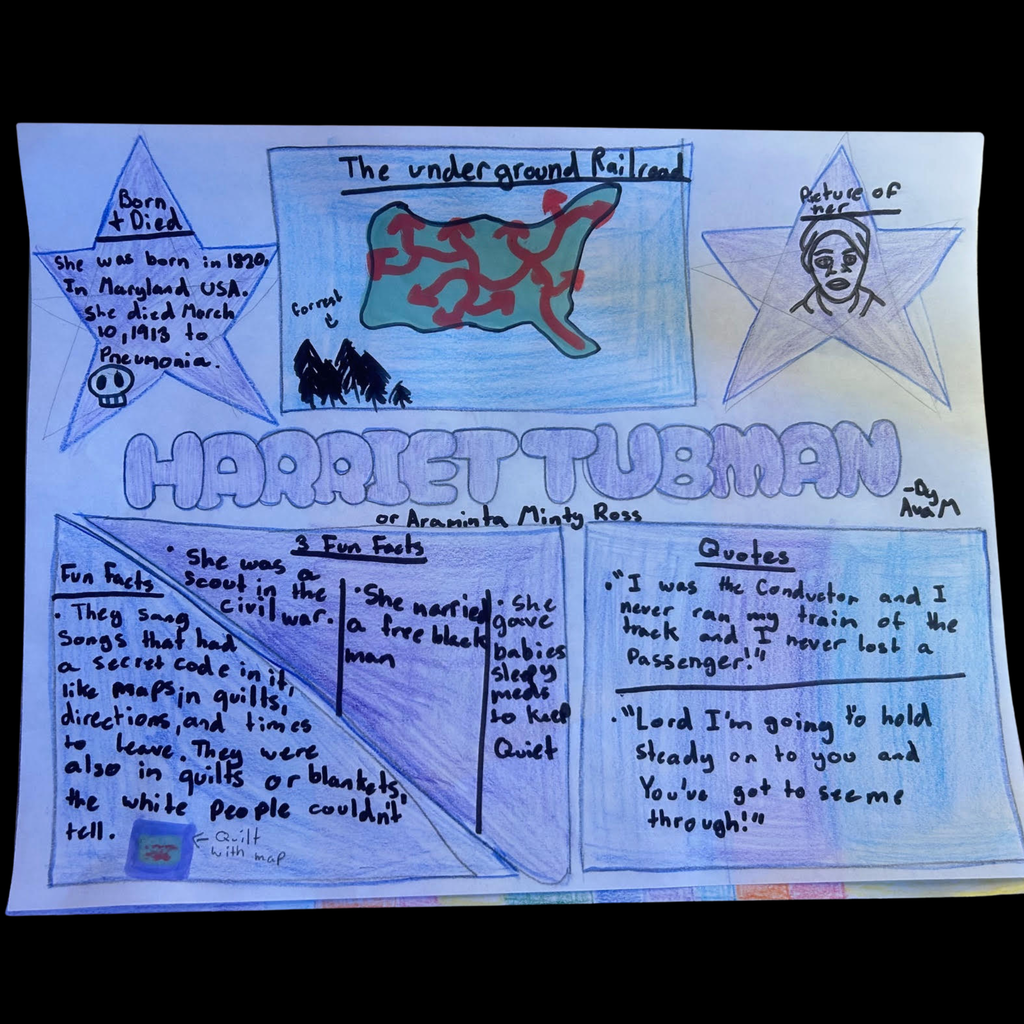 Born
+ Died
She was born in 1820,
In Maryland USA.
She died March
10, 1913 to
Pneumonia.
The underground Railroad
Forrest
Picture of
her
HARRIET TUBMAN
or Araminta Minty Ross
-By
Ava M
Fun Facts
• They sang
Songs that had
a secret code in it,
like maps in quilts,
directions, and times
to leave. They were
also in quilts or blankets,
the white people couldn't
tell.
Quilt
with map
3 Fun Facts
• She was a
scout in the
civil war.
• She married
a free black
man
• She
gave
babies
sleepy
meds
to keep
Quiet
Quotes
• "I was the Conductor and I
never ran my train of the
track and I never lost a
Passenger!"
• "Lord I'm going to hold
steady on to you and
You've got to see me
through!"